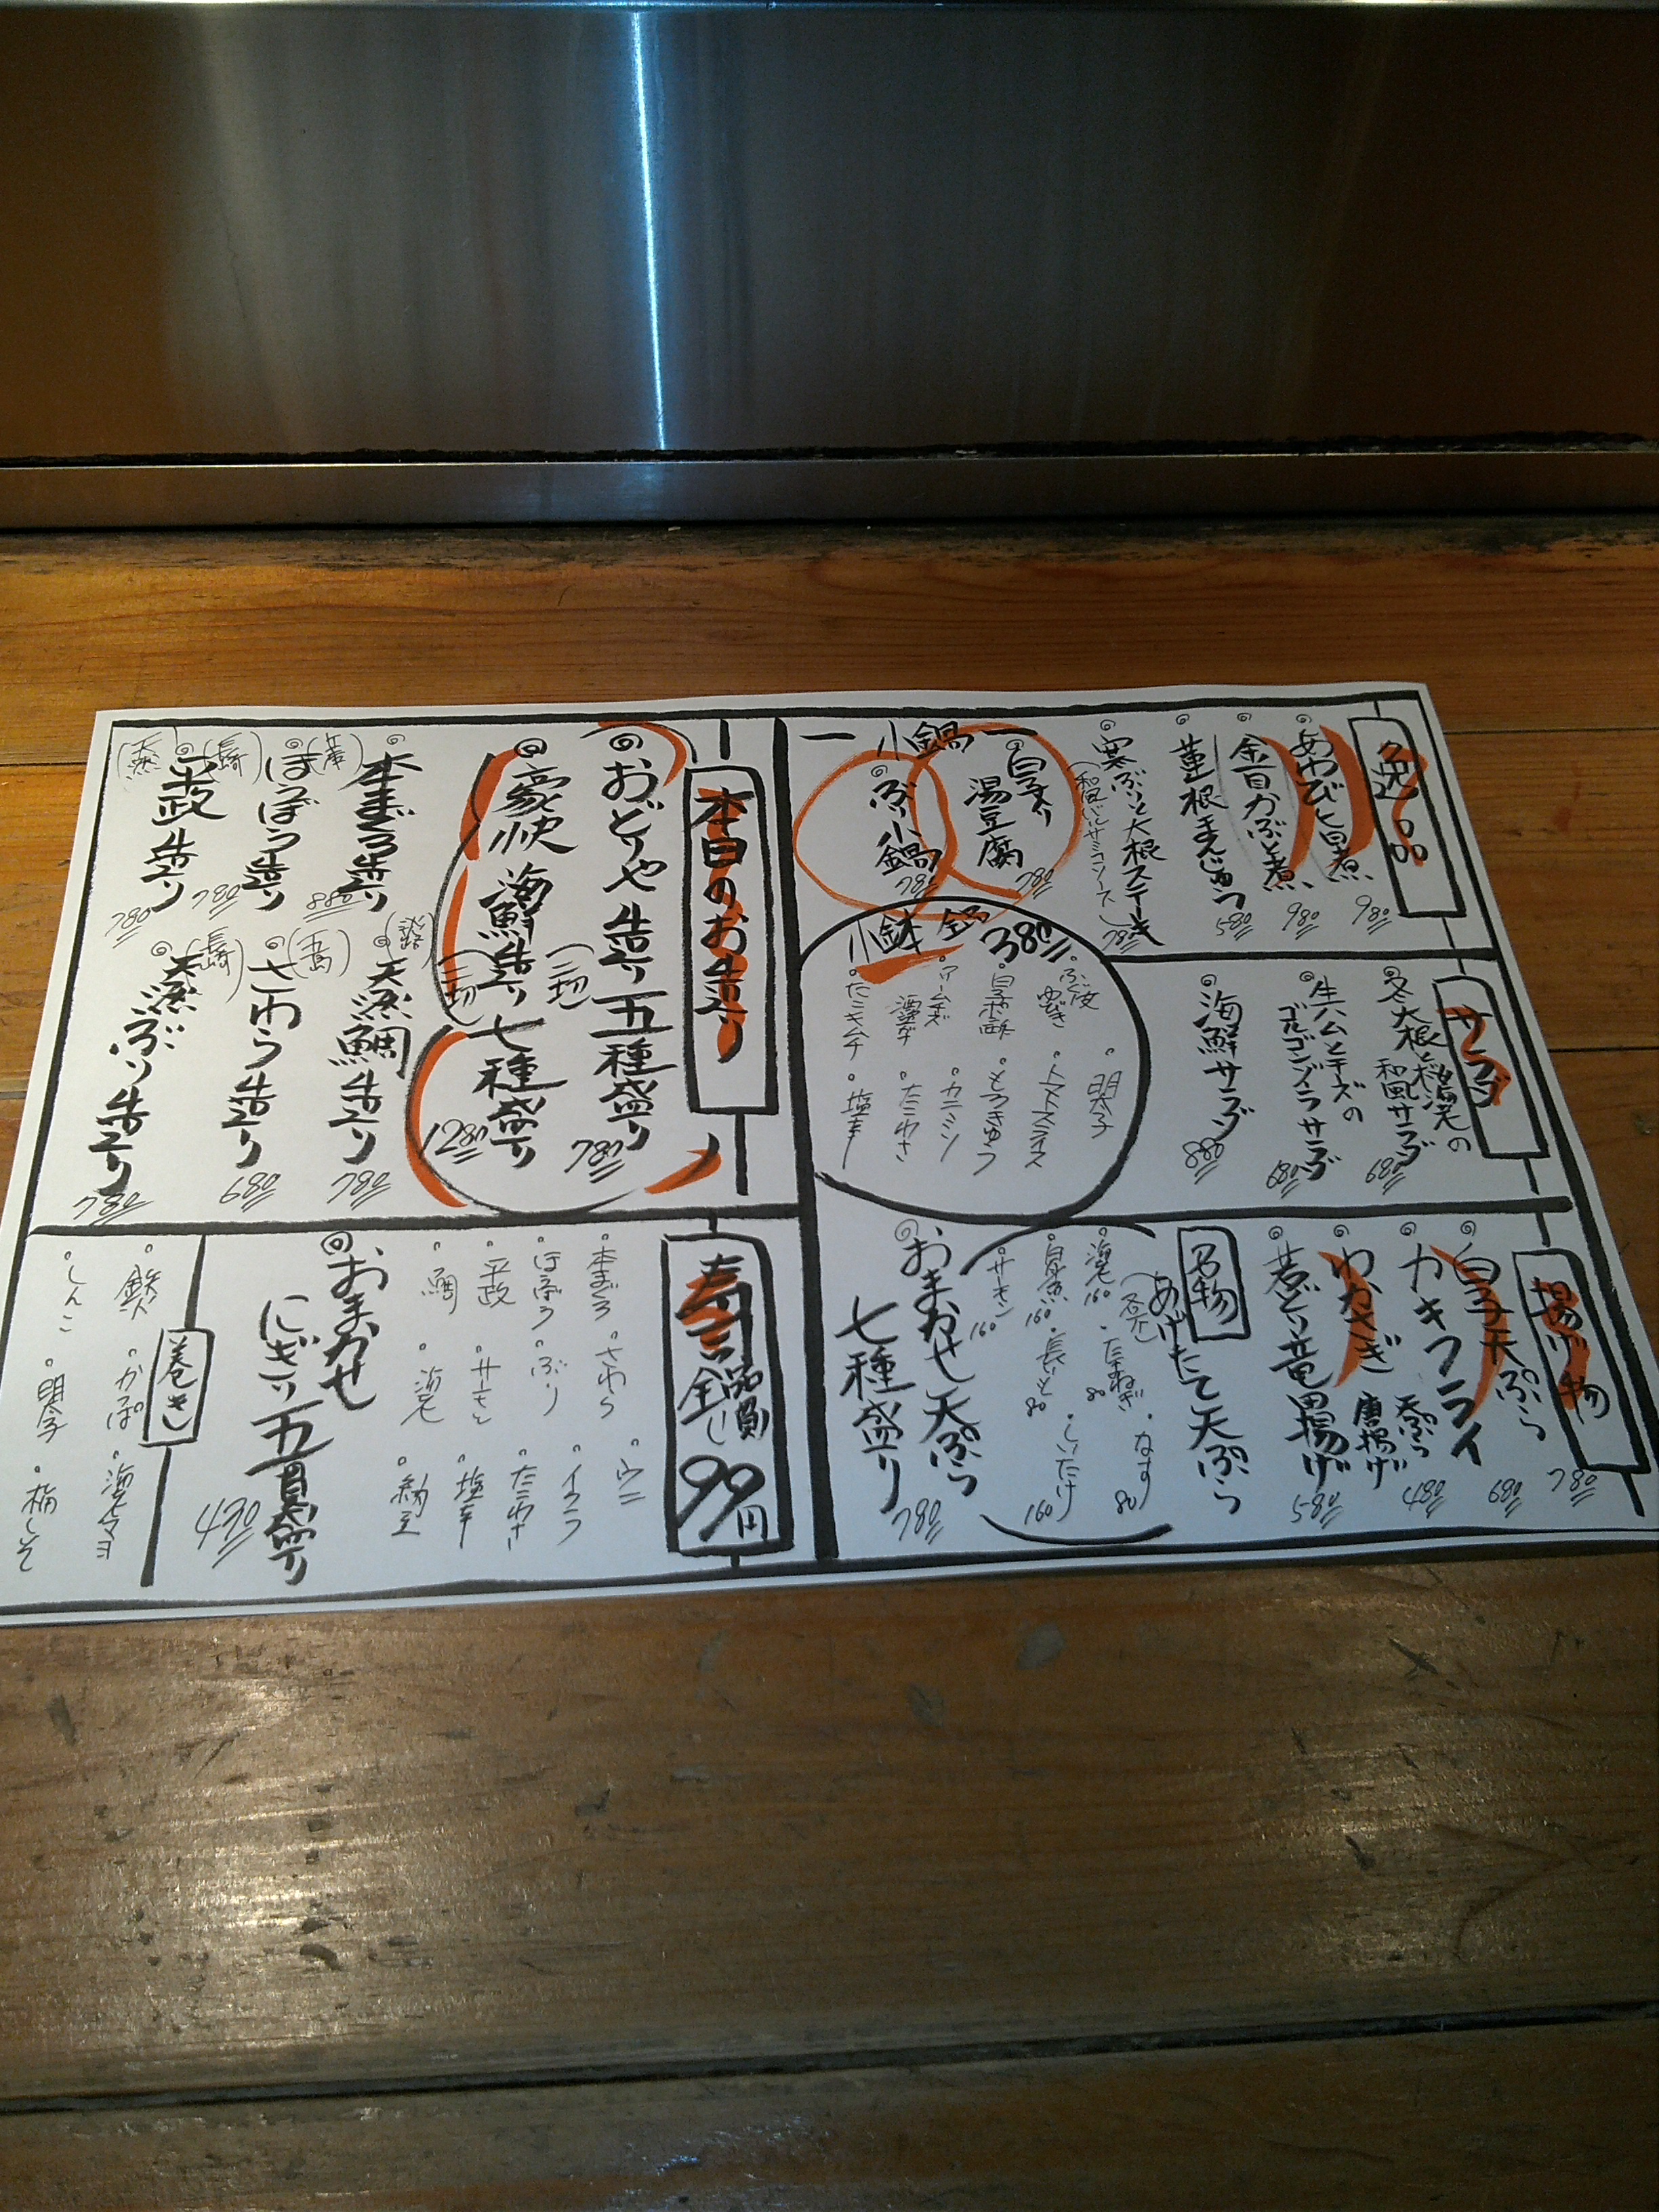 逸品
あわび旨煮
980
金目かぶと煮
980
蓮根まんじゅう
580
寒ぶりと大根ステーキ
(和風バルサミコソース)
780
小鍋
白子入り
湯豆腐
780
ぶり小鍋
780
サラダ
冬大根と桜海老の
和風サラダ
680
生ハムとチーズの
ゴルゴンゾーラサラダ
680
海鮮サラダ
880
小鉢
380
明太子
白子ポン酢
トマトスライス
もろきゅう
カニミソ
たこわさ
たこキムチ
塩辛
揚げ物
白子天ぷら
780
カキフライ
680
わかさぎ
天ぷら
唐揚げ
480
若どり竜田揚げ
580
名物
あげたて天ぷら
海老 160
たまねぎ 80
なす 80
白魚 160
長いも 80
しいたけ 160
サーモン 160
おまかせ天ぷら
七種盛り
780
本日のお造り
おどりや造り五種盛り
(二切)
780
豪快海鮮造り七種盛り
(二切)
1280
本まぐろ造り
880
天然鯛造り
780
ほうぼう造り
(長崎)
780
さわら造り
(五島)
680
平政造り
(天然)
780
天然ぶり造り
(長崎)
780
寿司
全品一貫
99円
本まぐろ
さわら
ウニ
ほうぼう
ぶり
イクラ
平政
サーモン
たこわさ
鯛
海老
塩辛
納豆
おまかせ
にぎり五貫盛り
490
巻き
鉄火
かっぱ
海老マヨ
しんこ
明太子
梅しそ